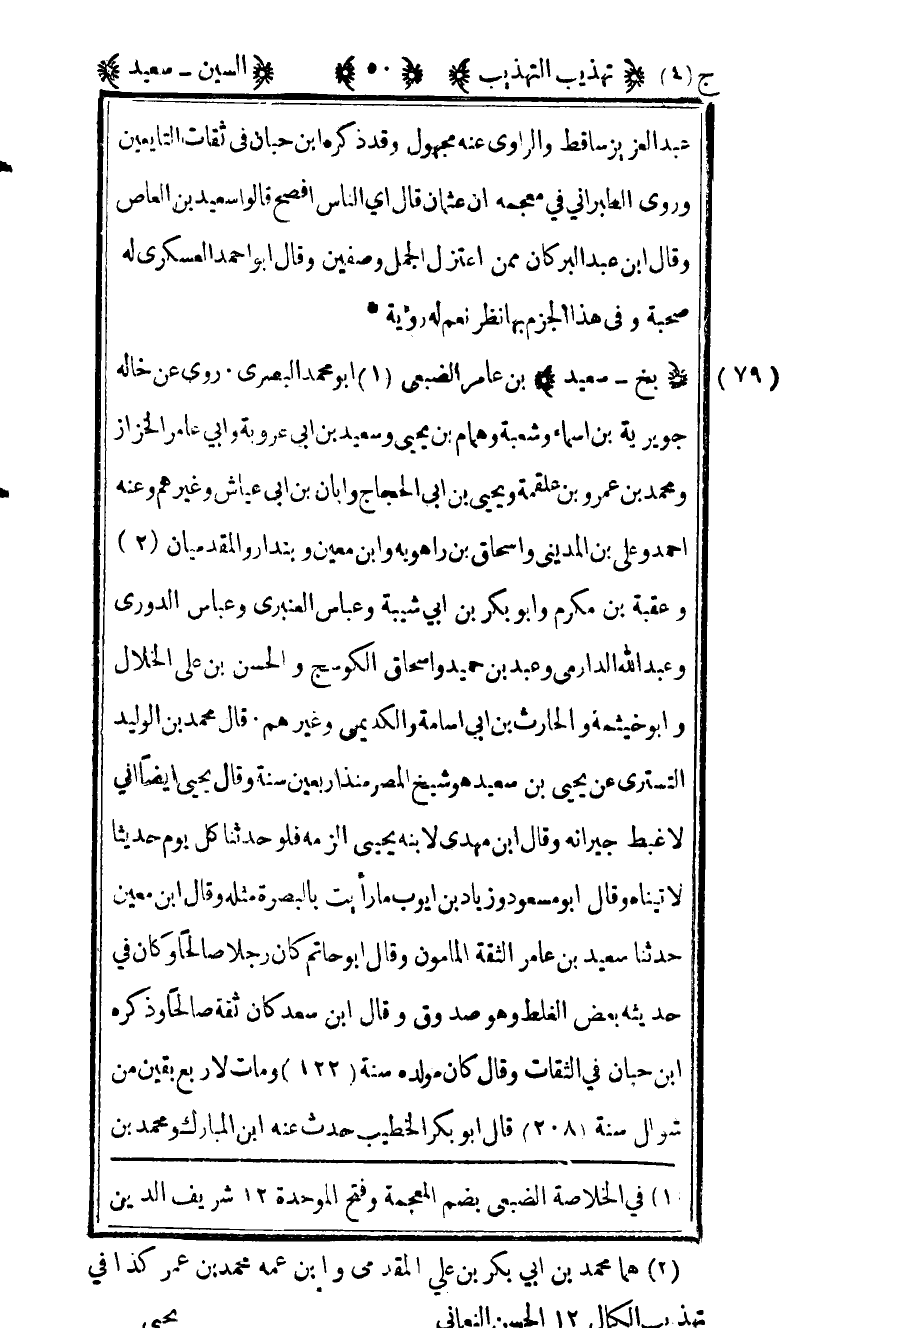 ج (٤) ﴿ تهذيب التهذيب ﴾ ﴿ ٥٠ ﴾ ﴿ السين ـ سعيد ﴾
عبد العزيز ساقط والراوى عنه مجهول وقد ذكره ابن حبان فى ثقات التابعين
وروى الطبراني في معجمه ان عثمان قال اي الناس افصح قالوا سعيد بن العاص
وقال ابن عبد البر كان ممن اعتزل الجمل وصفين وقال ابو احمد العسكرى له
صحبة و فى هذا الجزم بها نظر نعم له رؤية *
(٧٩) ﴿ بخ ـ سعيد ﴾ بن عامر الضبعى (١) ابو محمد البصرى . روى عن خاله
جويرية بن اسماء وشعبة وهمام بن يحيى وسعيد بن ابى عروبة وابي عامر الخزاز
ومحمد بن عمرو بن علقمة ويحيى بن ابي الحجاج وابان بن ابى عياش وغيرهم وعنه
احمد وعلي بن المدينى واسحاق بن راهويه وابن معين و بندار والمقدميان (٢)
و عقبة بن مكرم وابو بكر بن ابي شيبة وعباس العنبرى وعباس الدورى
وعبد الله الدارمى وعبد بن حميد واسحاق الكوسج و الحسن بن على الخلال
و ابو خيثمة و الحارث بن ابي اسامة والكديمى وغير هم . قال محمد بن الوليد
التسترى عن يحيى بن سعيد هو شيخ المصر منذ اربعين سنة وقال يحيى ايضاً اني
لاغبط جيرانه وقال ابن مهدى لابنه يحيى الزمه فلو حدثنا كل يوم حديثا
لاتيناه وقال ابو مسعود وزياد بن ايوب ما رأيت بالبصرة مثله وقال ابن معين
حدثنا سعيد بن عامر الثقة المامون وقال ابو حاتم كان رجلا صالحاً وكان في
حديثه بعض الغلط وهو صدوق و قال ابن سعد كان ثقة صالحاً وذكره
ابن حبان في الثقات وقال كان مولده سنة (١٢٢) ومات لاربع بقين من
شوال سنة (٢٠٨) قال ابو بكر الخطيب حدث عنه ابن المبارك ومحمد بن
١) في الخلاصة الضبعى بضم المعجمة وفتح الموحدة ١٢ شريف الدين
(٢) هما محمد بن ابي بكر بن علي المقدمى و ابن عمه محمد بن عمر كذا في
تهذيب الكمال ١٢ الحسن النعاني يحيى